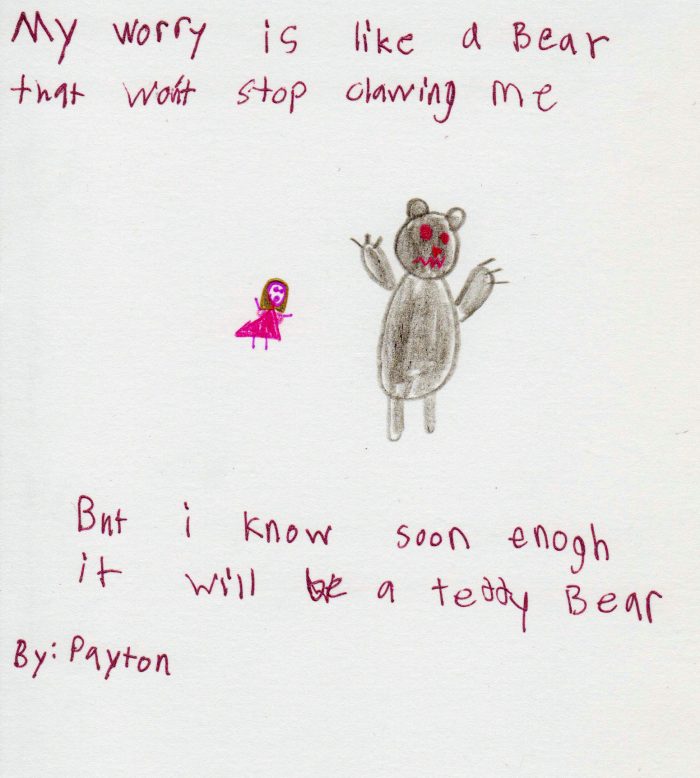 My worry is like a Bear
that won't stop clawing me
But i know soon enogh
it will be a teddy Bear
By: Payton